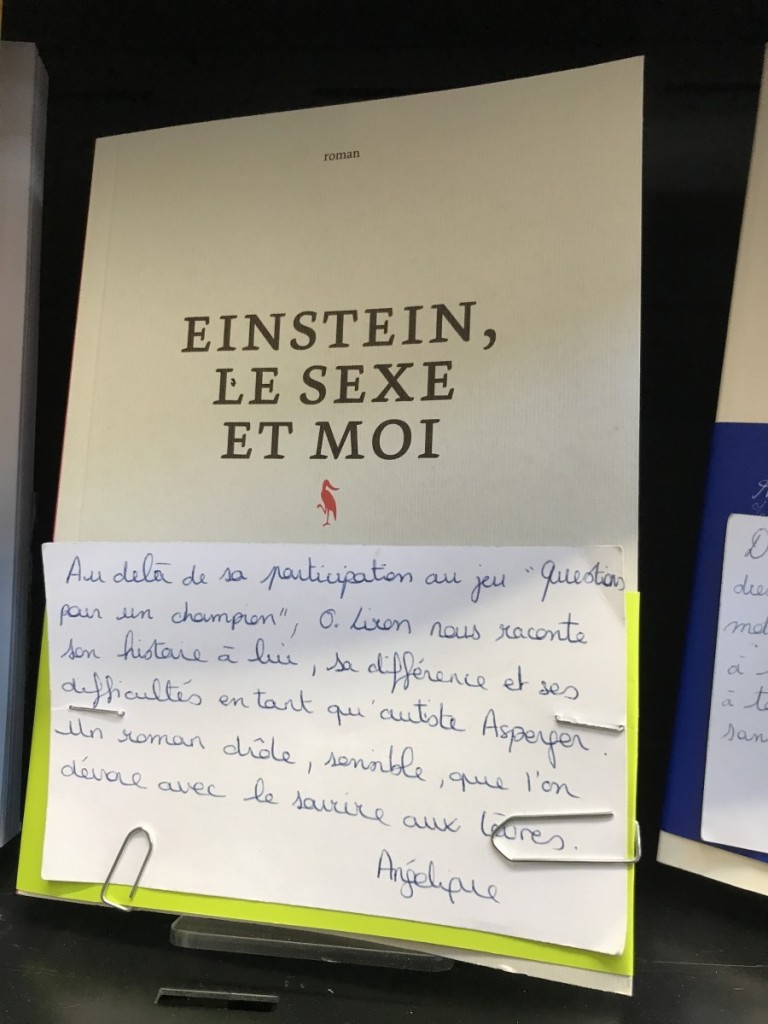 roman
EINSTEIN,
LE SEXE
ET MOI
Au delà de sa participation au jeu "Questions
pour un champion", O. Liron nous raconte
son histoire à lui, sa différence et ses
difficultés en tant qu'autiste Asperger.
Un roman drôle, sensible, que l'on
dévore avec le sourire aux lèvres.
Angélique
à
à
san